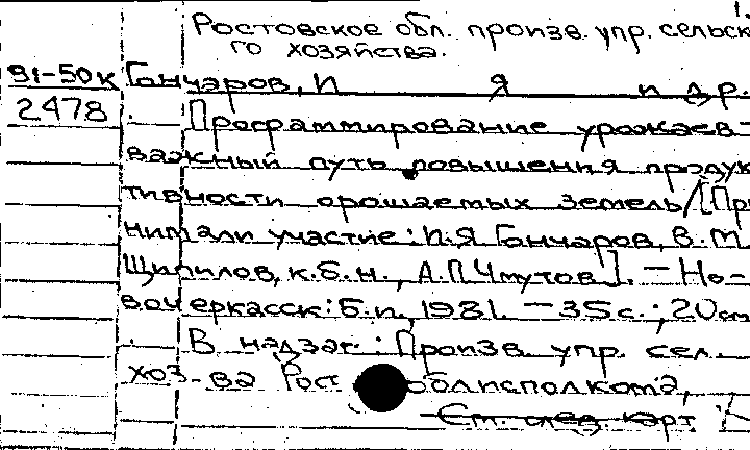 1.
Ростовское обл. произв. упр. сельск
го хозяйства.
91-50к Гончаров, П Я и др.
2478 Программирование урожаев -
важный путь повышения продук
тивности орошаемых земель/[При
нимали участие: П.Я Гончаров, В.М
Щипилов, к.б.н., А.П.Чмутов]. - Но-
вочеркасск: Б.и., 1981. - 35 с.; 20 см
В надзаг.: Произв. упр. сел.
хоз-ва Рост облисполкома,
См. след. карт